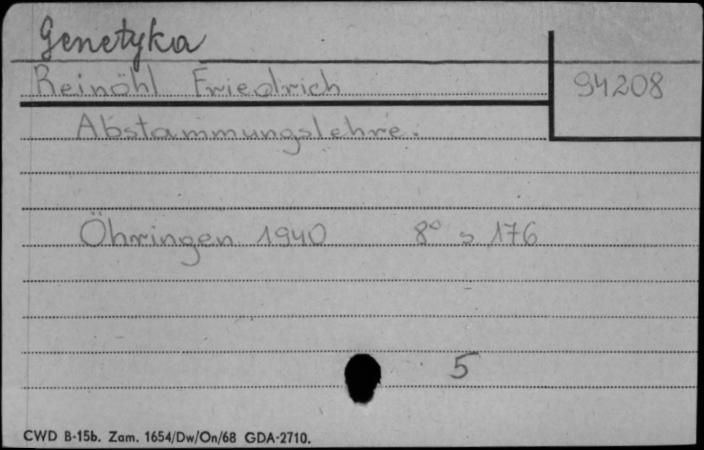 Genetyka
Reinöhl Friedrich
94208
Abstammungslehre.
Öhringen 1940 8° s 176
5
CWD B-15b. Zam. 1654/Dw/On/68 GDA-2710.